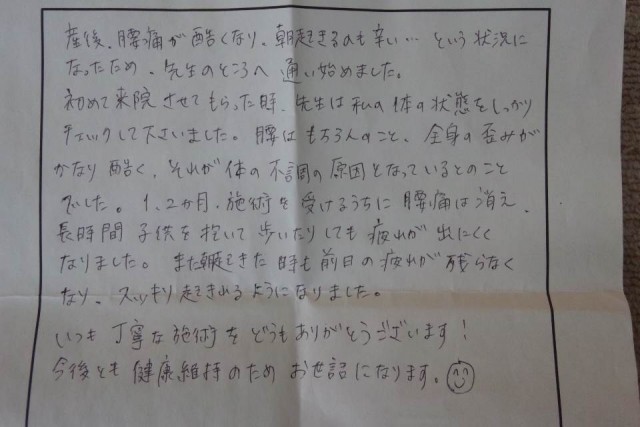 産後、腰痛が酷くなり、朝起きるのも辛い… という状況に
なったため、先生のところへ 通い始めました。
初めて来院させてもらった時、先生は私の体の状態をしっかり
チェックして下さいました。腰はもちろんのこと、全身の歪みが
かなり酷く、それが体の不調の原因となっているとのこと
でした。1、2ヶ月、施術を受けるうちに腰痛は消え、
長時間 子供を抱いて歩いたりしても疲れが出にくく
なりました。また朝起きた時も前日の疲れが残らなく
なり、スッキリ起きれるようになりました。
いつも丁寧な施術をどうもありがとうございます!
今後とも健康維持のためお世話になります。